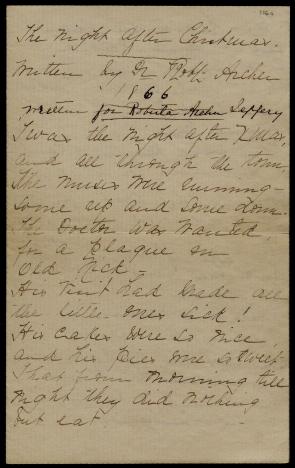 The night after Christmas.
Written by Dr Robt Archer
1866
written for Roberta Archer Jeffery
Twas the night after Xmas,
and all through the town,
The nurses were running —
some up and some down.
The Doctor was wanted
for a plague on
Old Nick —
His visit had made all
the little ones sick!
His cakes were so nice
and his pies were so sweet,
That from morning till
night they did nothing
but eat